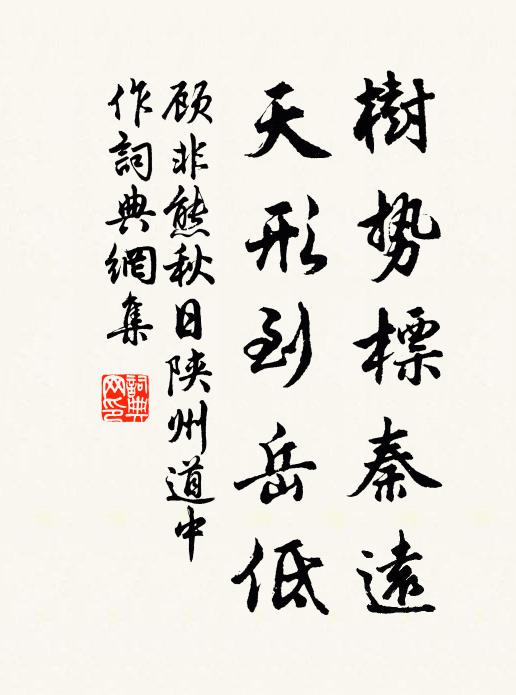 樹势標秦遠
天形到岳低
顾非熊秋日陕州道中
作詞典網集
詞典网印